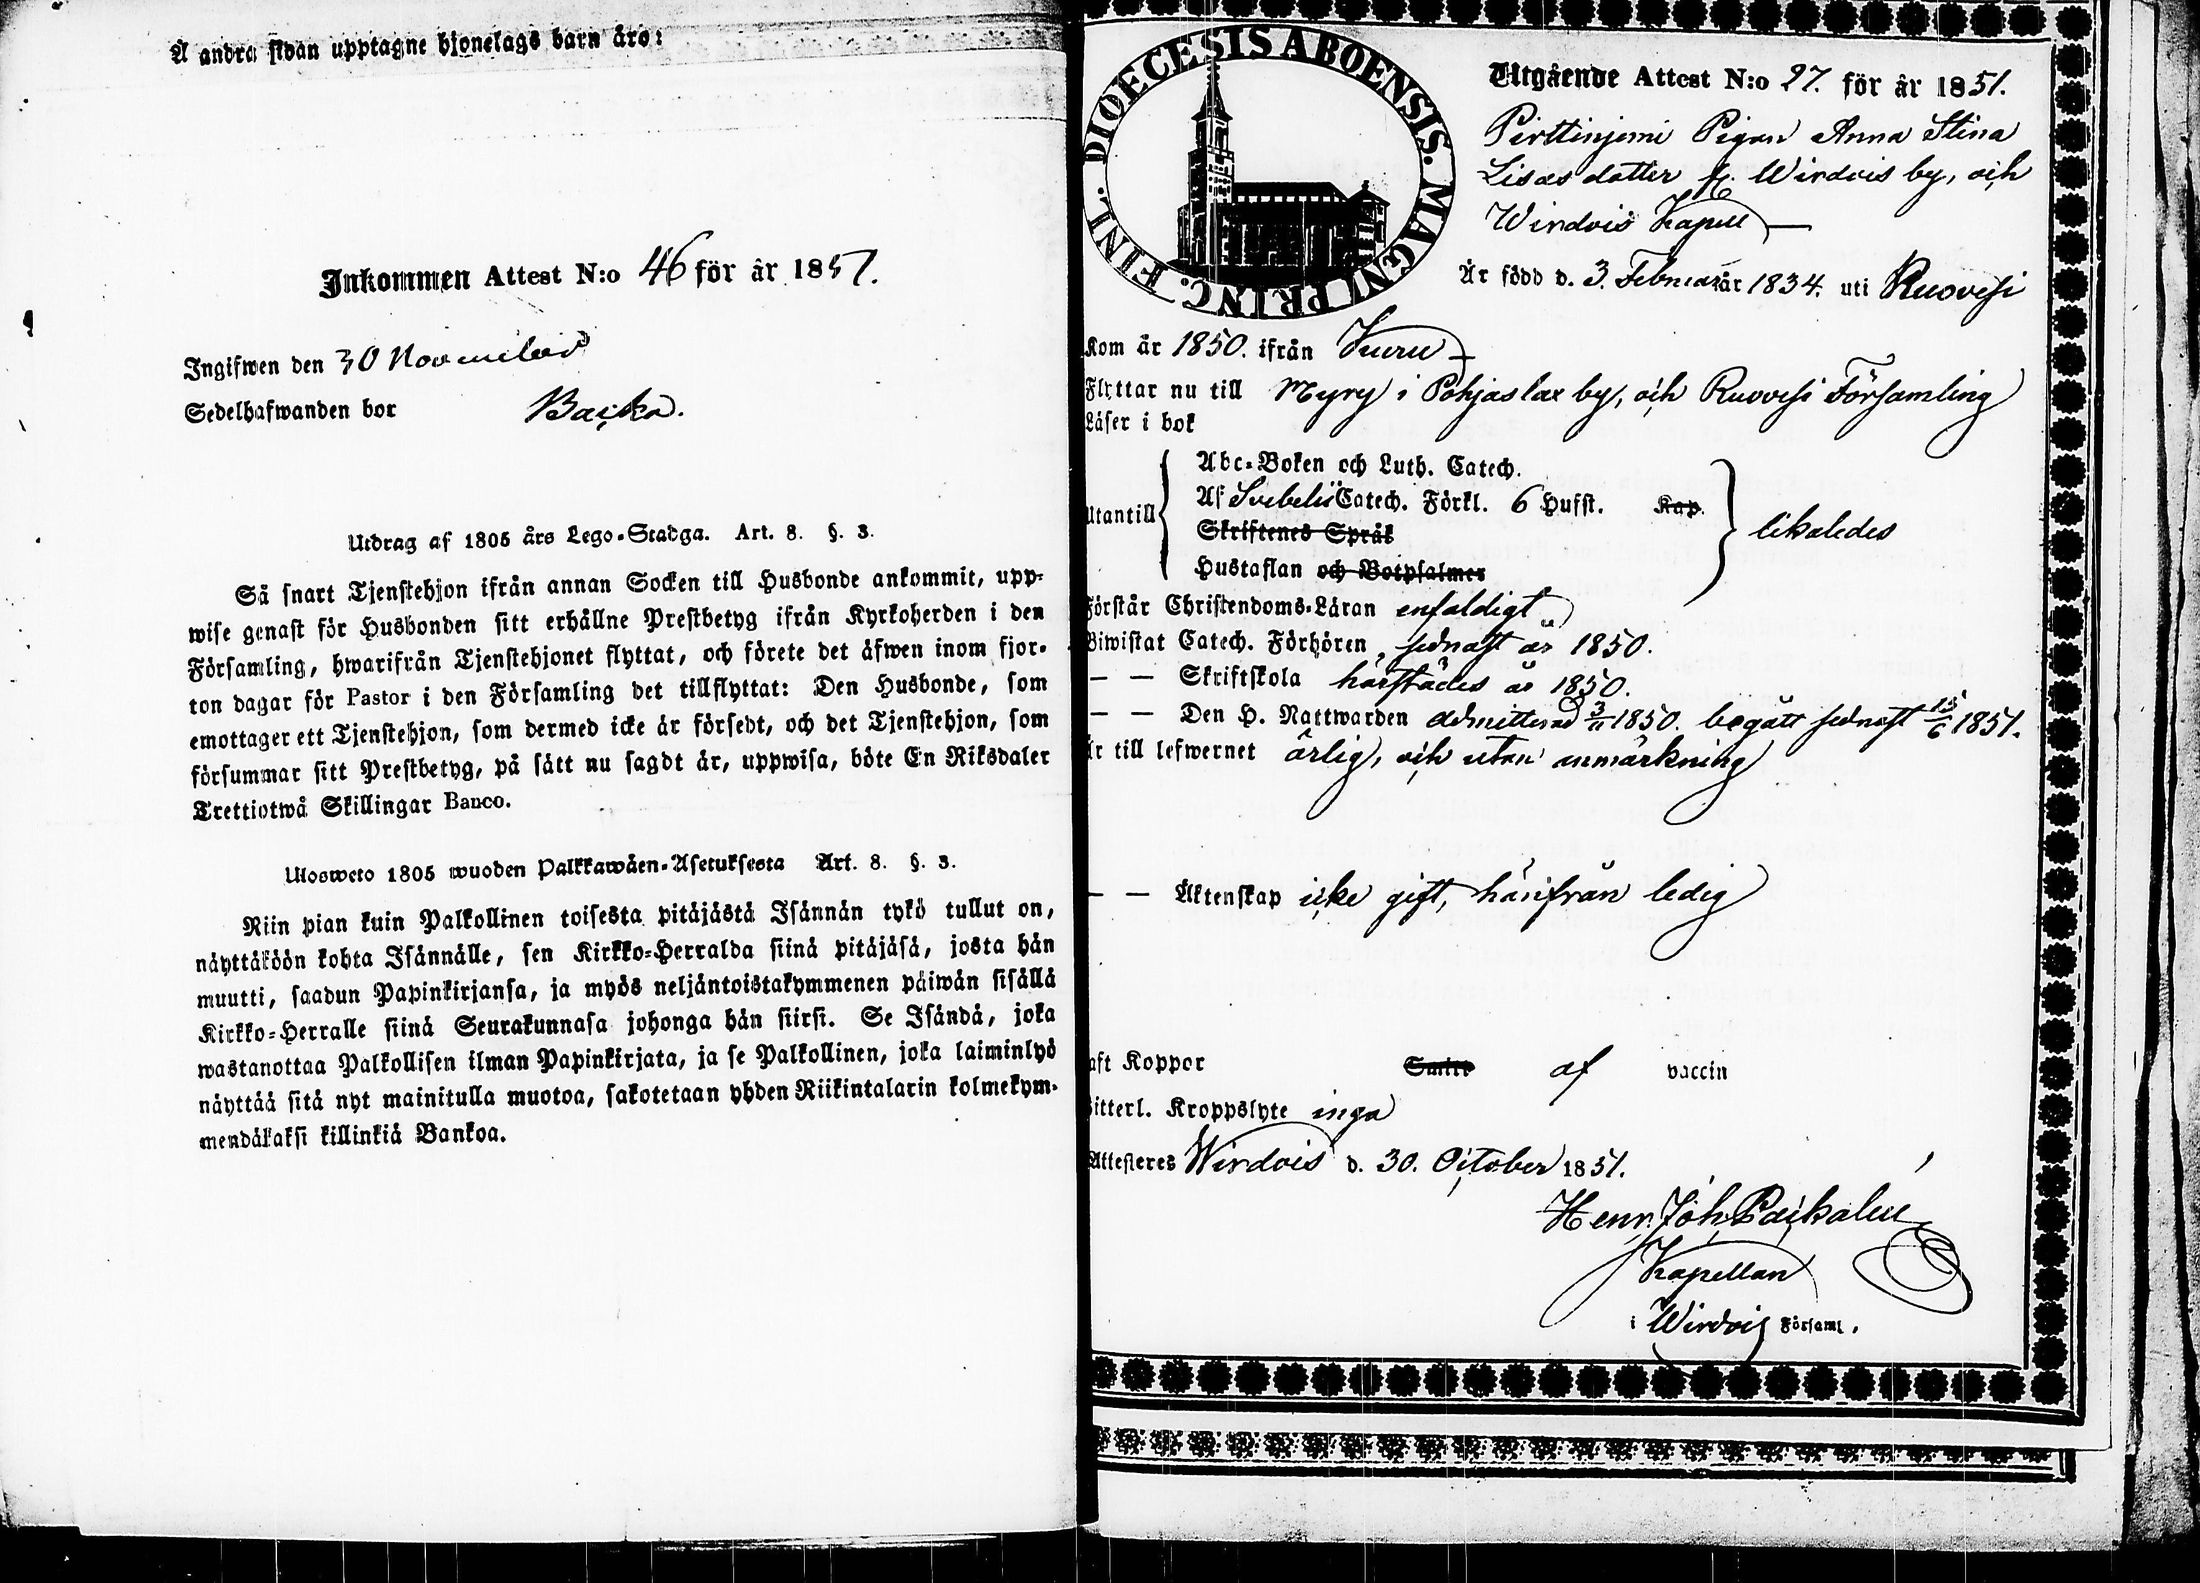 Å andra sidan upptagne hjonelags barn äro:
Inkommen Attest N:o 46 för år 1851.
Ingifwen den 30 November
Sedelhafwanden bor Backa.
Utdrag af 1805 års Lego-Stadga. Art. 8. §. 3.
Så snart Tjenstehjon ifrån annan Socken till Husbonde ankommit, upp-
wise genast för Husbonden sitt erhållne Prestbetyg ifrån Kyrkoherden i den
Församling, hwarifrån Tjenstehjonet flyttat, och förete det äfwen inom fjor-
ton dagar för Pastor i den Församling det tillflyttat: Den Husbonde, som
emottager ett Tjenstehjon, som dermed icke är försedt, och det Tjenstehjon, som
försummar sitt Prestbetyg, på sätt nu sagdt är, uppwisa, böte En Riksdaler
Trettiotwå Skillingar Banco.
Ulosweto 1805 wuoden Palkkawäen-Asetuksesta Art. 8. §. 3.
Niin pian kuin Palkollinen toisesta pitäjästä Isännän tykö tullut on,
näyttäköön kohta Isännälle, sen Kirkko-Herralda siinä pitäjäsä, josta hän
muutti, saadun Papinkirjansa, ja myös neljäntoistakymmenen päiwän sisällä
Kirkko-Herralle siinä Seurakunnasa johonga hän siirsi. Se Isändä, joka
wastanottaa Palkollisen ilman Papinkirjata, ja se Palkollinen, joka laiminlyö
näyttää sitä nyt mainitulla muotoa, sakotetaan yhden Riikintalarin kolmekym-
mendäkaksi killinkiä Bankoa.
DIOECESIS ABOENSIS. MAGNI PRINC. FINL.
Utgående Attest N:o 27. för år 1851.
Pirttinjemi Pigan Anna Stina
Lisasdotter fr. Wirdois by, och
Wirdois Kapell
Är född d. 3. Februari år 1834. uti Ruovesi
Kom år 1850. ifrån Kuru
Flyttar nu till Myry i Pohjaslax by, och Ruovesi Församling
Läser i bok
Utantill
Abc-Boken och Luth. Catech.
Af Svebelii Catech. Förkl. 6 Hufst. Kap.
Skriftenes Språk
Hustaflan och Botpsalmer
likaledes
Förstår Christendoms-Läran enfaldigt
Biwistat Catech. Förhören, sednast år 1850.
— — Skriftskola härstädes år 1850.
— — Den H. Nattwarden admitterad 3/11 1850. begått sednast 15/6 1851.
Är till lefwernet ärlig, och utan anmärkning
— — Äktenskap icke gift, härifrån ledig
aft Koppor Smitt af vaccin
itterl. Kroppslyte inga
Attesteres Wirdois d. 30. October 1851.
Henr. Joh. Packalen
Kapellan
i Wirdois Församl.